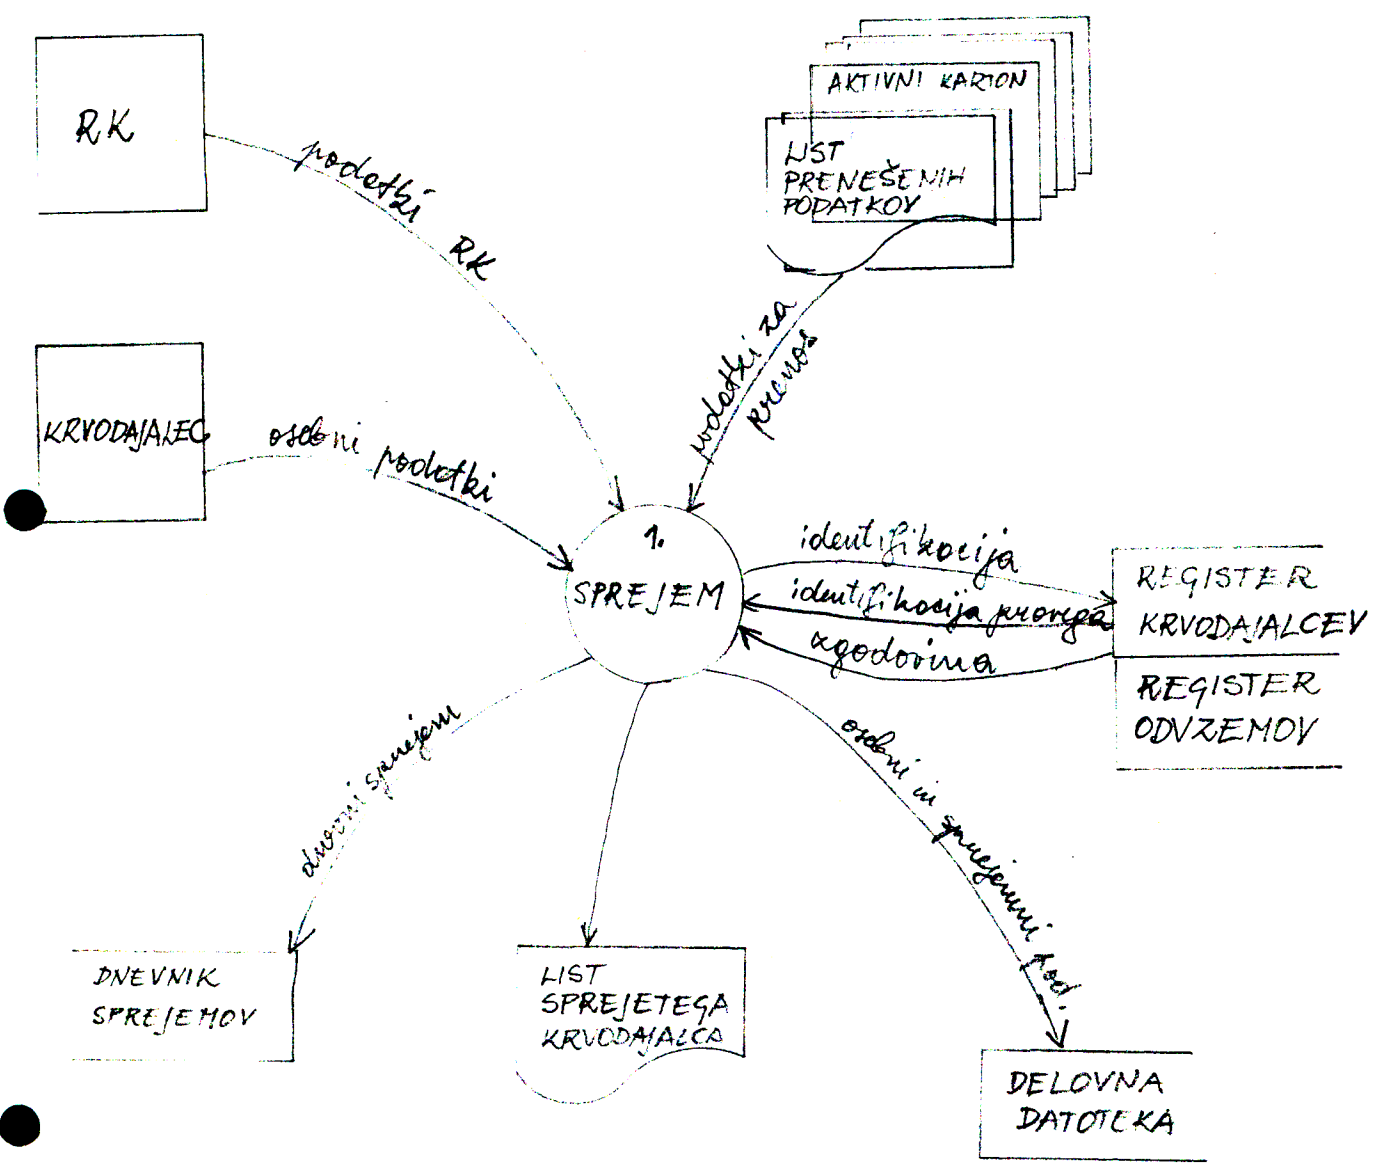 RK
podatki RK
AKTIVNI KARTON
LIST
PRENEŠENIH
PODATKOV
podatki za
prenos
KRVODAJALEC
osebni podatki
1.
SPREJEM
identifikacija
identifikacija prvega
zgodovina
REGISTER
KRVODAJALCEV
REGISTER
ODVZEMOV
dnevni sprejem
osebni in sprejemni pod.
DNEVNIK
SPREJEMOV
LIST
SPREJETEGA
KRVODAJALCA
DELOVNA
DATOTEKA